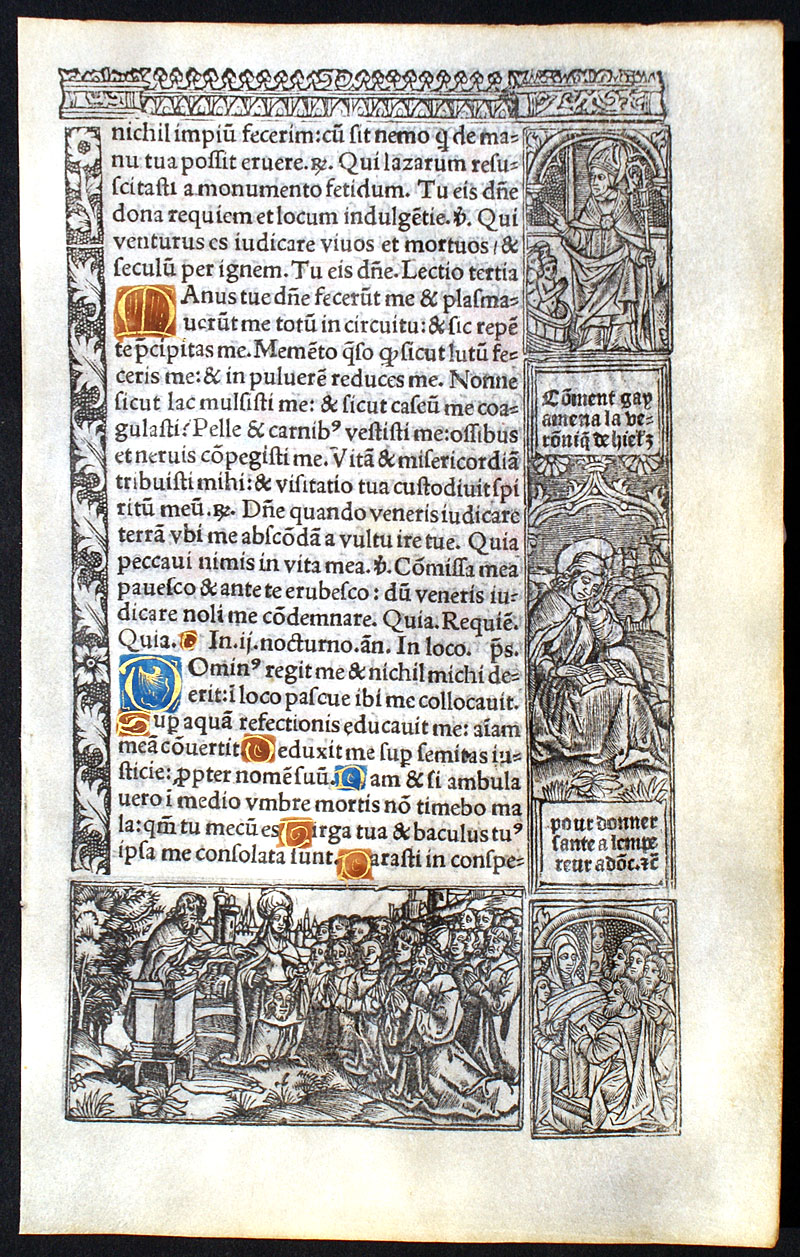 nichil impiū fecerim: cū sit nemo q̄ de ma-
nu tua possit eruere. ℟. Qui lazarum resu-
scitasti a monumento fetidum. Tu eis dn̄e
dona requiem et locum indulgētie. ℣. Qui
venturus es iudicare viuos et mortuos / &
seculū per ignem. Tu eis dn̄e. Lectio tertia
MAnus tue dn̄e fecerūt me & plasma-
uerūt me totū in circuitu: & sic repē
te p̄cipitas me. Memēto q̄so ꝙ sicut lutū fe-
ceris me: & in puluerē reduces me. Nonne
sicut lac mulsisti me: & sicut caseū me coa-
gulasti? Pelle & carnibꝰ vestisti me: ossibus
et neruis cōpegisti me. Vitā & misericordiā
tribuisti mihi: & visitatio tua custodiuit spi
ritū meū. ℟. Dn̄e quando veneris iudicare
terrā vbi me abscōdā a vultu ire tue. Quia
peccaui nimis in vita mea. ℣. Cōmissa mea
pauesco & ante te erubesco: dū veneris iu-
dicare noli me cōdemnare. Quia. Requiē.
Quia. In .ij. nocturno. ān. In loco. ps̄.
DOminꝰ regit me & nichil michi de-
erit: ī loco pascue ibi me collocauit.
Sup̄ aquā refectionis educauit me: aīam
meā cōuertit. Deduxit me sup̄ semitas iu-
sticie: ꝓpter nomē suū. Nam & si ambula
uero ī medio vmbre mortis nō timebo ma
la: qm̄ tu mecū es. Virga tua & baculus tuꝰ
ipsa me consolata sunt. Parasti in conspe-
Cōment gay
amena la ve-
rōniq̄ de hielꝫ
pour donner
sante a lempe
reur adōc. ⁊c̄